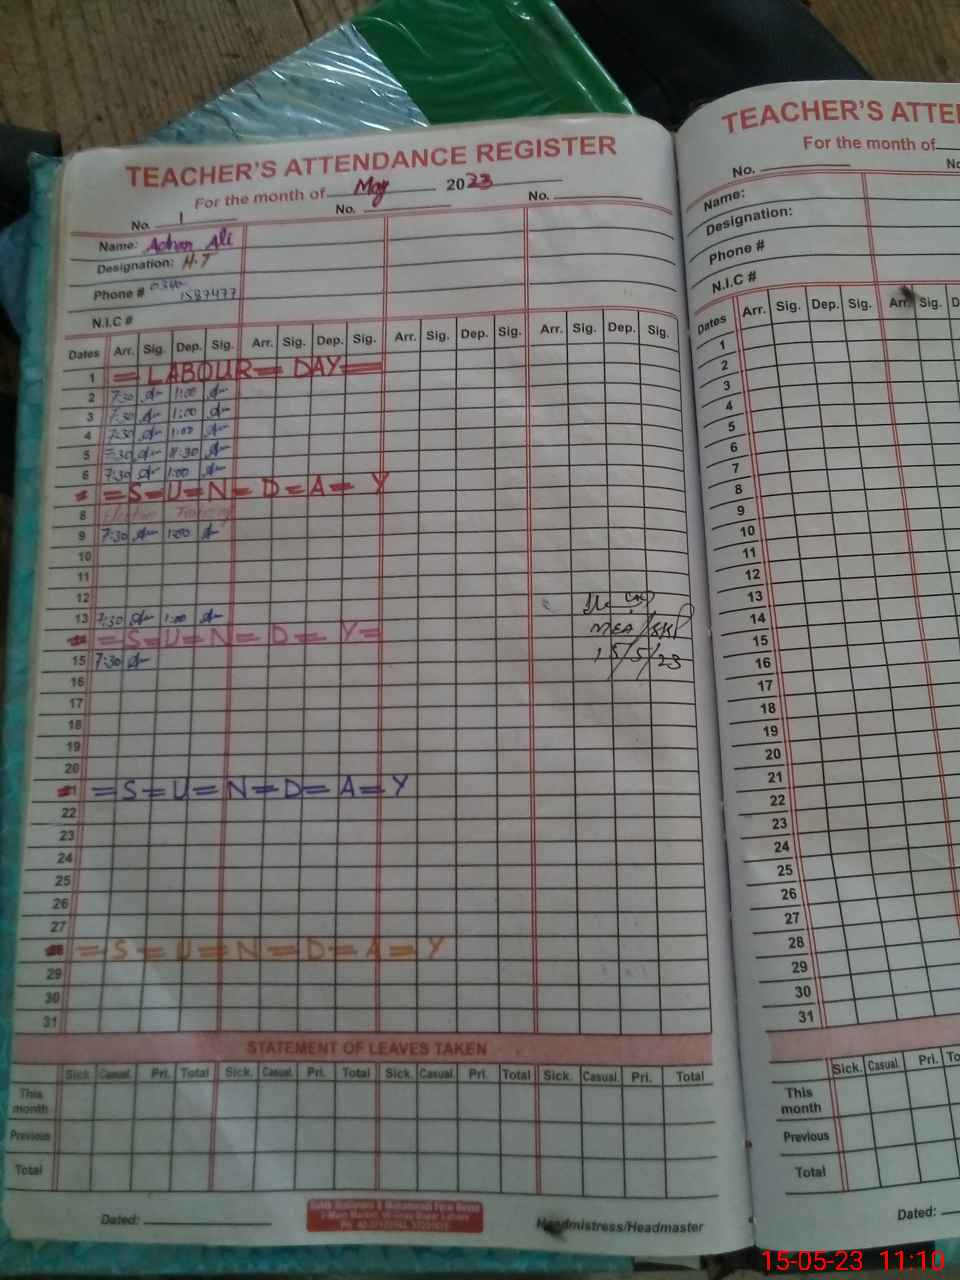 TEACHER'S ATTENDANCE REGISTER
For the month of May 2023
No. 1 No. No.
Name: Adnan Ali
Designation: H.T
Phone # 0340
1587477
N.I.C #
Dates Arr. Sig. Dep. Sig. Arr. Sig. Dep. Sig. Arr. Sig. Dep. Sig. Arr. Sig. Dep. Sig.
1 = LABOUR = DAY =
2 7:30 1:00
3 7:30 1:00
4 7:30 1:00
5 7:30 11:30
6 7:30 1:00
=S=U=N=D=A=Y
8 Election Training
9 7:30 1:00
10
11
12
13 7:30 1:00
=S=U=N=D=Y=
15 7:30
MEA/SKP
15/5/23
16
17
18
19
20
=S=U=N=D=A=Y
22
23
24
25
26
27
=S=U=N=D=A=Y
29
30
31
STATEMENT OF LEAVES TAKEN
Sick Casual. Pri. Total Sick. Casual. Pri. Total Sick. Casual. Pri. Total Sick. Casual. Pri. Total
This
month
Previous
Total
Dated: Headmistress/Headmaster
TEACHER'S ATTE
For the month of
No. No
Name:
Designation:
Phone #
N.I.C #
Dates Arr. Sig. Dep. Sig. Arr. Sig. D
1
2
3
4
5
6
7
8
9
10
11
12
13
14
15
16
17
18
19
20
21
22
23
24
25
26
27
28
29
30
31
Sick. Casual. Pri. To
This
month
Previous
Total
Dated:
15-05-23 11:10